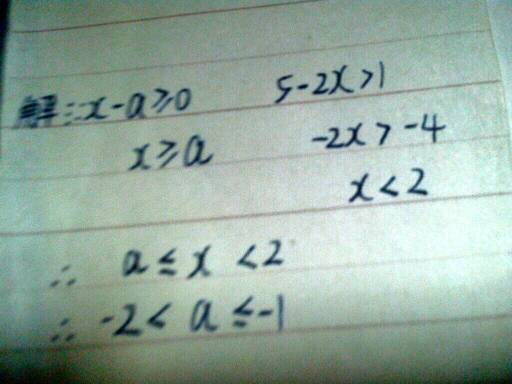 解:∵x-a≥0 5-2x>1
x≥a -2x>-4
x<2
∴ a≤x<2
∴ -2<a≤-1